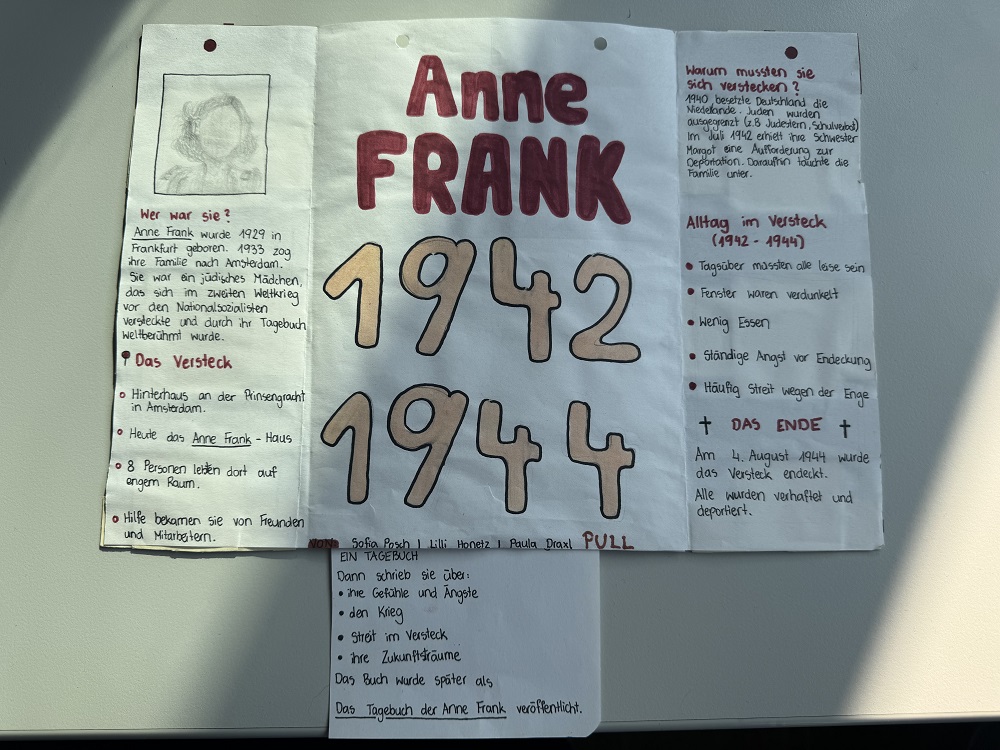 Wer war sie?
Anne Frank wurde 1929 in
Frankfurt geboren. 1933 zog
ihre Familie nach Amsterdam.
Sie war ein jüdisches Mädchen,
das sich im zweiten Weltkrieg
vor den Nationalsozialisten
versteckte und durch ihr Tagebuch
weltberühmt wurde.
Das Versteck
Hinterhaus an der Prinsengracht
in Amsterdam.
Heute das Anne Frank - Haus
8 Personen lebten dort auf
engem Raum.
Hilfe bekamen sie von Freunden
und Mitarbeitern.
Anne
FRANK
1942
1944
Sofia Posch | Lilli Honetz | Paula Draxl PULL
EIN TAGEBUCH
Dann schrieb sie über:
• ihre Gefühle und Ängste
• den Krieg
• Streit im Versteck
• ihre Zukunftsträume
Das Buch wurde später als
Das Tagebuch der Anne Frank veröffentlicht.
Warum mussten sie
sich verstecken?
1940 besetzte Deutschland die
Niederlande. Juden wurden
ausgegrenzt (z.B. Judestern, Schulverbot)
Im Juli 1942 erhielt ihre Schwester
Margot eine Aufforderung zur
Deportation. Daraufhin tauchte die
Familie unter.
Alltag im Versteck
(1942 - 1944)
• Tagsüber mussten alle leise sein
• Fenster waren verdunkelt
• Wenig Essen
• Ständige Angst vor Endeckung
• Häufig Streit wegen der Enge
† DAS ENDE †
Am 4. August 1944 wurde
das Versteck endeckt.
Alle wurden verhaftet und
deportiert.